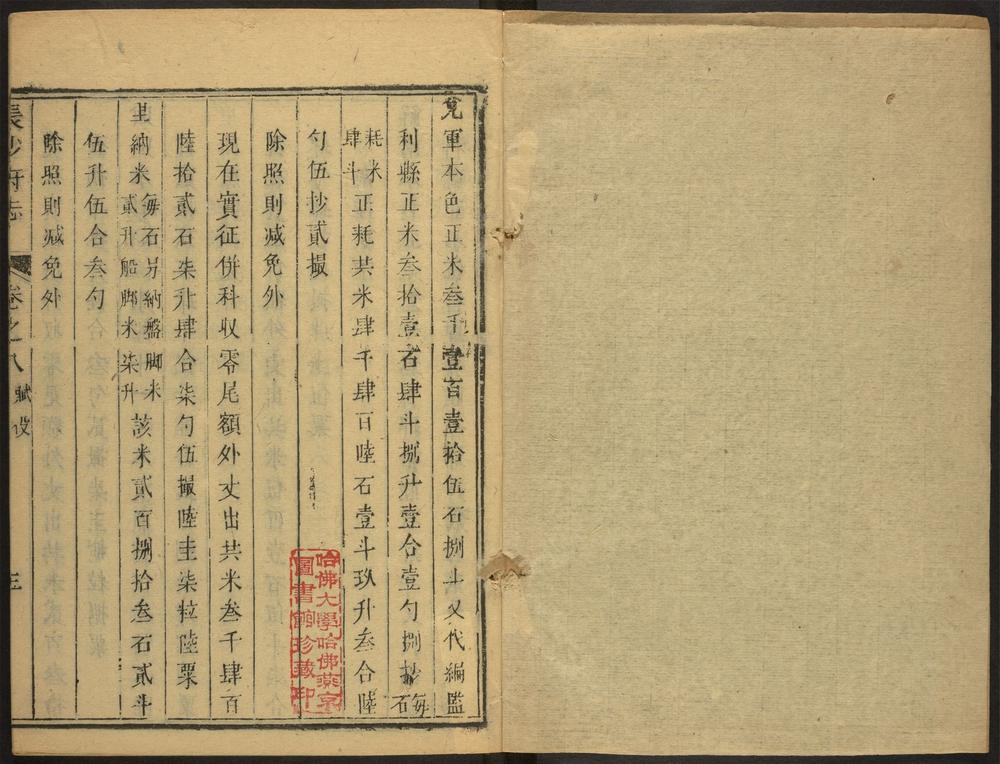 兌軍本色正米叁千壹百壹拾伍石捌斗又代編監
利縣正米叁拾壹石肆斗捌升壹合壹勺捌抄每石
耗米肆斗正耗共米肆千肆百陸石壹斗玖升叁合陸
勺伍抄貳撮
除照則減免外
現在實征併科収零尾額外丈出共米叁千肆百
陸拾貳石柒升肆合柒勺伍撮陸圭柒粒陸粟
里納米每石另納盤脚米貳升船脚米柒升該米貳百捌拾叁石貳斗
伍升伍合叁勺
除照則減免外
長沙府志 卷之八 賦役 三
哈佛大學哈佛燕京
圖書館珍藏印